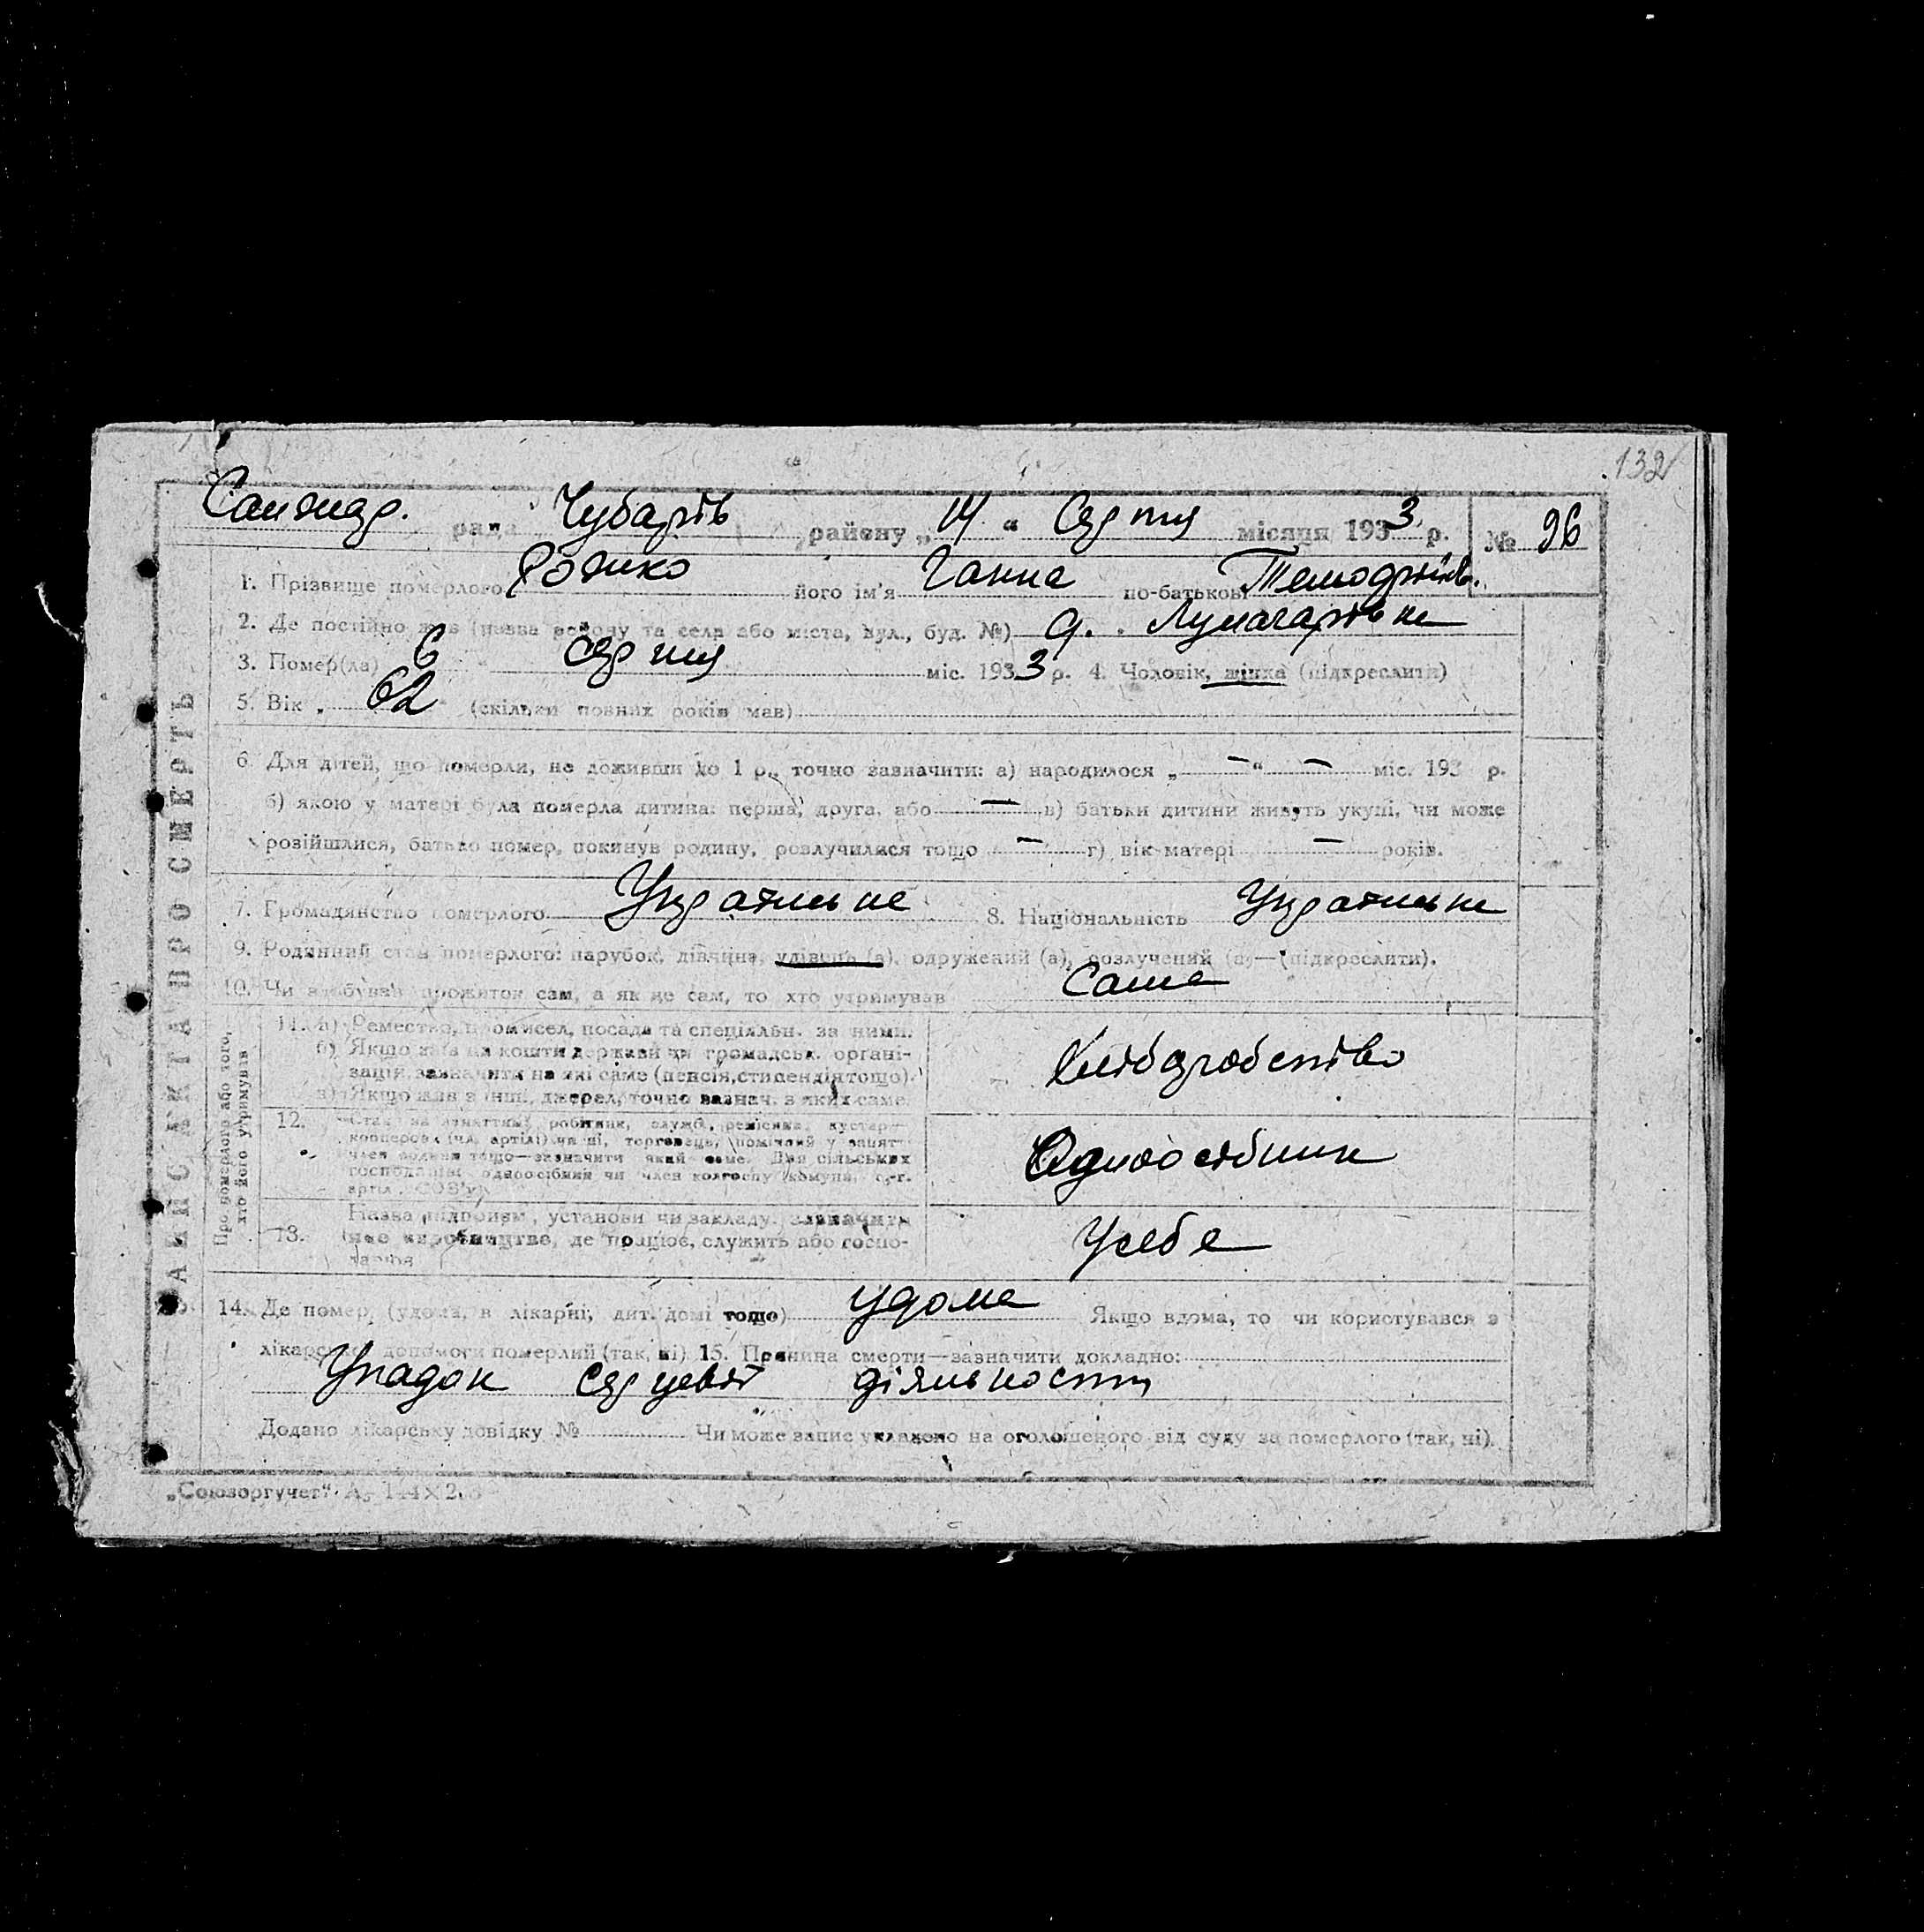 132
Санжар. рада Чубарів району „ 14 “ Серпня місяця 1933 р. № 96
1. Прізвище померлого його ім'я Ганна по-батькові
2. Де постійно жив (назва району та села або міста, вул., буд. №)
3. Помер(ла) 6 Серпня міс. 1933 р. 4. Чоловік, жінка (підкреслити)
5. Вік 62 (скільки повних років мав)
6. Для дітей, що померли, не доживши до 1 р., точно зазначити: а) народилося „ — “ — міс. 193 р.
б) якою у матері була померла дитина: перша, друга, або — в) батьки дитини живуть укупі, чи може
розійшлися, батько помер, покинув родину, розлучилися тощо — г) вік матері — років.
7. Громадянство померлого Українське 8. Національність Українка
9. Родинний стан померлого: парубок, дівчина, удівець (а), одружений (а), розлучений (а)—(підкреслити).
10. Чи здобував прожиток сам, а як не сам, то хто утримував Сама
ЗАПИС АКТА ПРО СМЕРТЬ
Про померлого або того,
хто його утримував
11. а) Ремество, промисел, посада та спеціальн. за ними.
б) Якщо жив на кошти держави чи громадськ. органі-
зацій, зазначити на які саме (пенсія, стипендія тощо).
в) Якщо жив з інш. джерел, точно зазнач. з яких саме.
Хліборобство
12.
господарів: одноосібний чи член колгоспу
Одноосібник
13. Назва підприєм., установи чи закладу, зазначити
яке виробництво, де працює, служить або госпо-
У себе
14. Де помер, (удома, в лікарні, дит. домі тощо) удома Якщо вдома, то чи користувався з
лікарської допомоги померлий (так, ні) 15. Причина смерти—зазначити докладно:
Упадок серцевої діяльности
Додано лікарську довідку № Чи може запис укладено на оголошеного від суду за померлого (так, ні).
„Союзоргучет“.